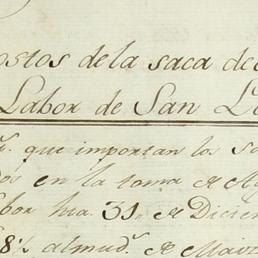 ostos de la saca de
Labor de San L
q.e importan los S
os en la toma de A
bor hta. 31, de Diciem
8½ almud.s de Maiz